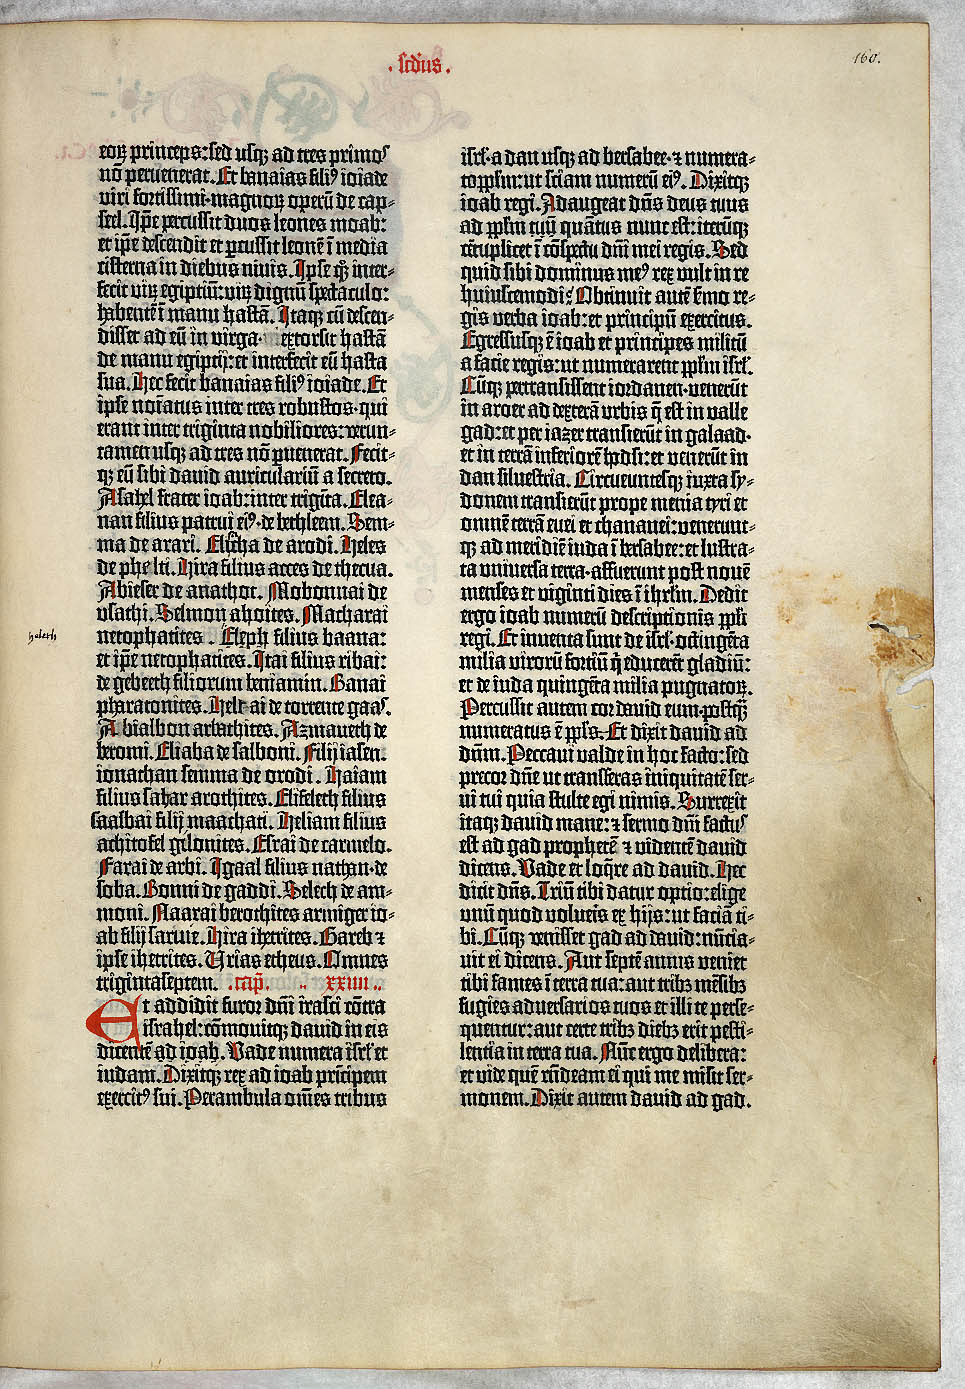 .scd'us.
160.
eoꝝ princeps: sed usqꝫ ad tres primos
nō peruenerat. Et banaias filiꝰ ioiade
viri fortissimi·magnoꝝ operū de cap⸗
seel. Ip̄e percussit duos leones moab:
et ip̄e descendit et ꝑcussit leonē ī media
cisterna in diebus niuis. Ipse qꝫ inter⸗
fecit virū egiptiū: virū dignū spectaculo:
habentē ī manu hastā. Itaqꝫ cū descen⸗
disset ad eū in virga· vi extorsit hastā
de manu egiptij: et interfecit eū hasta
sua. Hec fecit banaias filiꝰ ioiade. Et
ipse noīatus inter tres robustos·qui
erant inter triginta nobiliores: verun⸗
tamen usqꝫ ad tres nō ꝑuenerat. Fecit⸗
qꝫ eū sibi dauid auriculariū a secreto.
Asahel frater ioab: inter trigīta. Elea⸗
nan filius patrui eiꝰ·de bethleem. Sem⸗
ma de arari. Elicha de arodi. Heles
de phelti. Hira filius acces de thecua.
Abieser de anathot. Mobonnai de
usathi. Selmon ahoites. Macharai
netophatites. Eleph filius baana:
haleth
et ip̄e netophatites. Itai filius ribai:
de gebeeth filiorum beniamin. Banai
pharatonites. Helt-ai de torrente gaas.
Abialbon arbathites. Azmaueth de
beromi. Eliaba de salboni. Filij iasen:
ionathan semma de orodi. Haiam
filius sahar arothites. Elifeleth filius
saalbai filij maachati. Heliam filius
achitofel gilonites. Esrai de carmelo.
Farai de arbi. Igaal filius nathan·de
soba. Bonni de gaddi. Selech de am⸗
moni. Naarai berothites armiger io⸗
ab filij saruie. Hira ihetrites. Gareb ⁊
ipse ihetrites. Urias etheus. Omnes
trigintaseptem. .cap̄. .. xxiiii ..
Et addidit furor dn̄i irasci cōtra
israhel: cōmouitqꝫ dauid in eis
dicentē ad ioab. Vade numera isrl' et
iudam. Dixitqꝫ rex ad ioab principem
exercitꝰ sui. Perambula om̄es tribus
isrl'·a dan usqꝫ ad bersabee·⁊ numera⸗
to ppl̄m: ut sciam numerū eiꝰ. Dixitqꝫ
ioab regi. Adaugeat dn̄s deus tuus
ad ppl̄m tuū quātus nunc est: iterūqꝫ
cētuplicet ī cōspectu dn̄i mei regis. Sed
quid sibi dominus meꝰ rex vult in re
huiuscemodi? Obtinuit autē s̄mo re⸗
gis verba ioab: et principū exercitus.
Egressusqꝫ ē ioab et principes militū
a facie regis: ut numerarent ppl̄m isrl'.
Cūqꝫ pertransissent iordanen·venerūt
in aroer ad dexterā urbis q̄ est in valle
gad: et per iazer transierūt in galaad·
et in terrā inferiorē hodsi: et venerūt in
dan siluestria. Circueuntesqꝫ iuxta sy⸗
donem transierūt prope menia tyri et
omnē terrā euei et chananei: venerunt⸗
qꝫ ad meridiē iuda ī bersabee: et lustra⸗
ta universa terra·affuerunt post nouē
menses et viginti dies ī ihrl̄m. Dedit
ergo ioab numerū descriptionis ppl'i
regi. Et inventa sunt de isrl'·octingēta
milia virorū fortiū q̄ educerēt gladiū:
et de iuda quingēta milia pugnatoꝝ.
Percussit autem cor dauid eum·postq̄
numeratus ē ppl's. Et dixit dauid ad
dn̄m. Peccaui valde in hoc facto: sed
precor dn̄e ut transferas iniquitatē ser⸗
ui tui quia stulte egi nimis. Surrexit
itaqꝫ dauid mane: ⁊ sermo dn̄i factus
est ad gad prophetē ⁊ videntē dauid
dicens. Vade et loq̄re ad dauid. Hec
dicit dn̄s. Triū tibi datur optio: elige
unū quod volueris ex hijs: ut faciā ti⸗
bi. Cūqꝫ venisset gad ad dauid: nūcia⸗
uit ei dicens. Aut septē annis veniet
tibi fames ī terra tua: aut tribꝫ mēsibꝫ
fugies adversarios tuos et illi te perse⸗
quentur: aut certe tribꝫ diebꝫ erit pesti⸗
lentia in terra tua. Nūc ergo delibera:
et vide quē rn̄deam ei qui me misit ser⸗
monem. Dixit autem dauid ad gad.